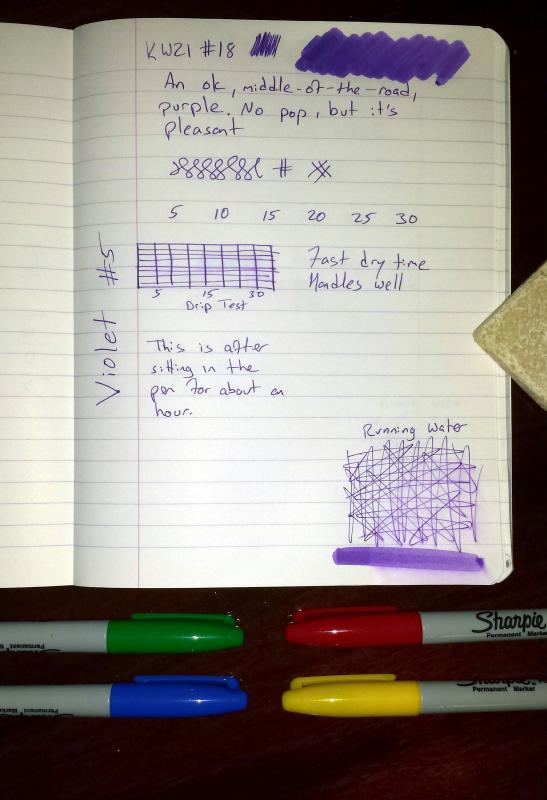 KWZI #18
An ok, middle-of-the-road,
purple. No pop, but it's
pleasant
#
5 10 15 20 25 30
Violet #5
Fast dry time
Handles well
5 15 30
Drip Test
This is after
sitting in the
pen for about an
hour.
Running Water
Sharpie
Permanent Marker
Sharpie
Permanent Marker
Permanent Marker
Permanent Marker